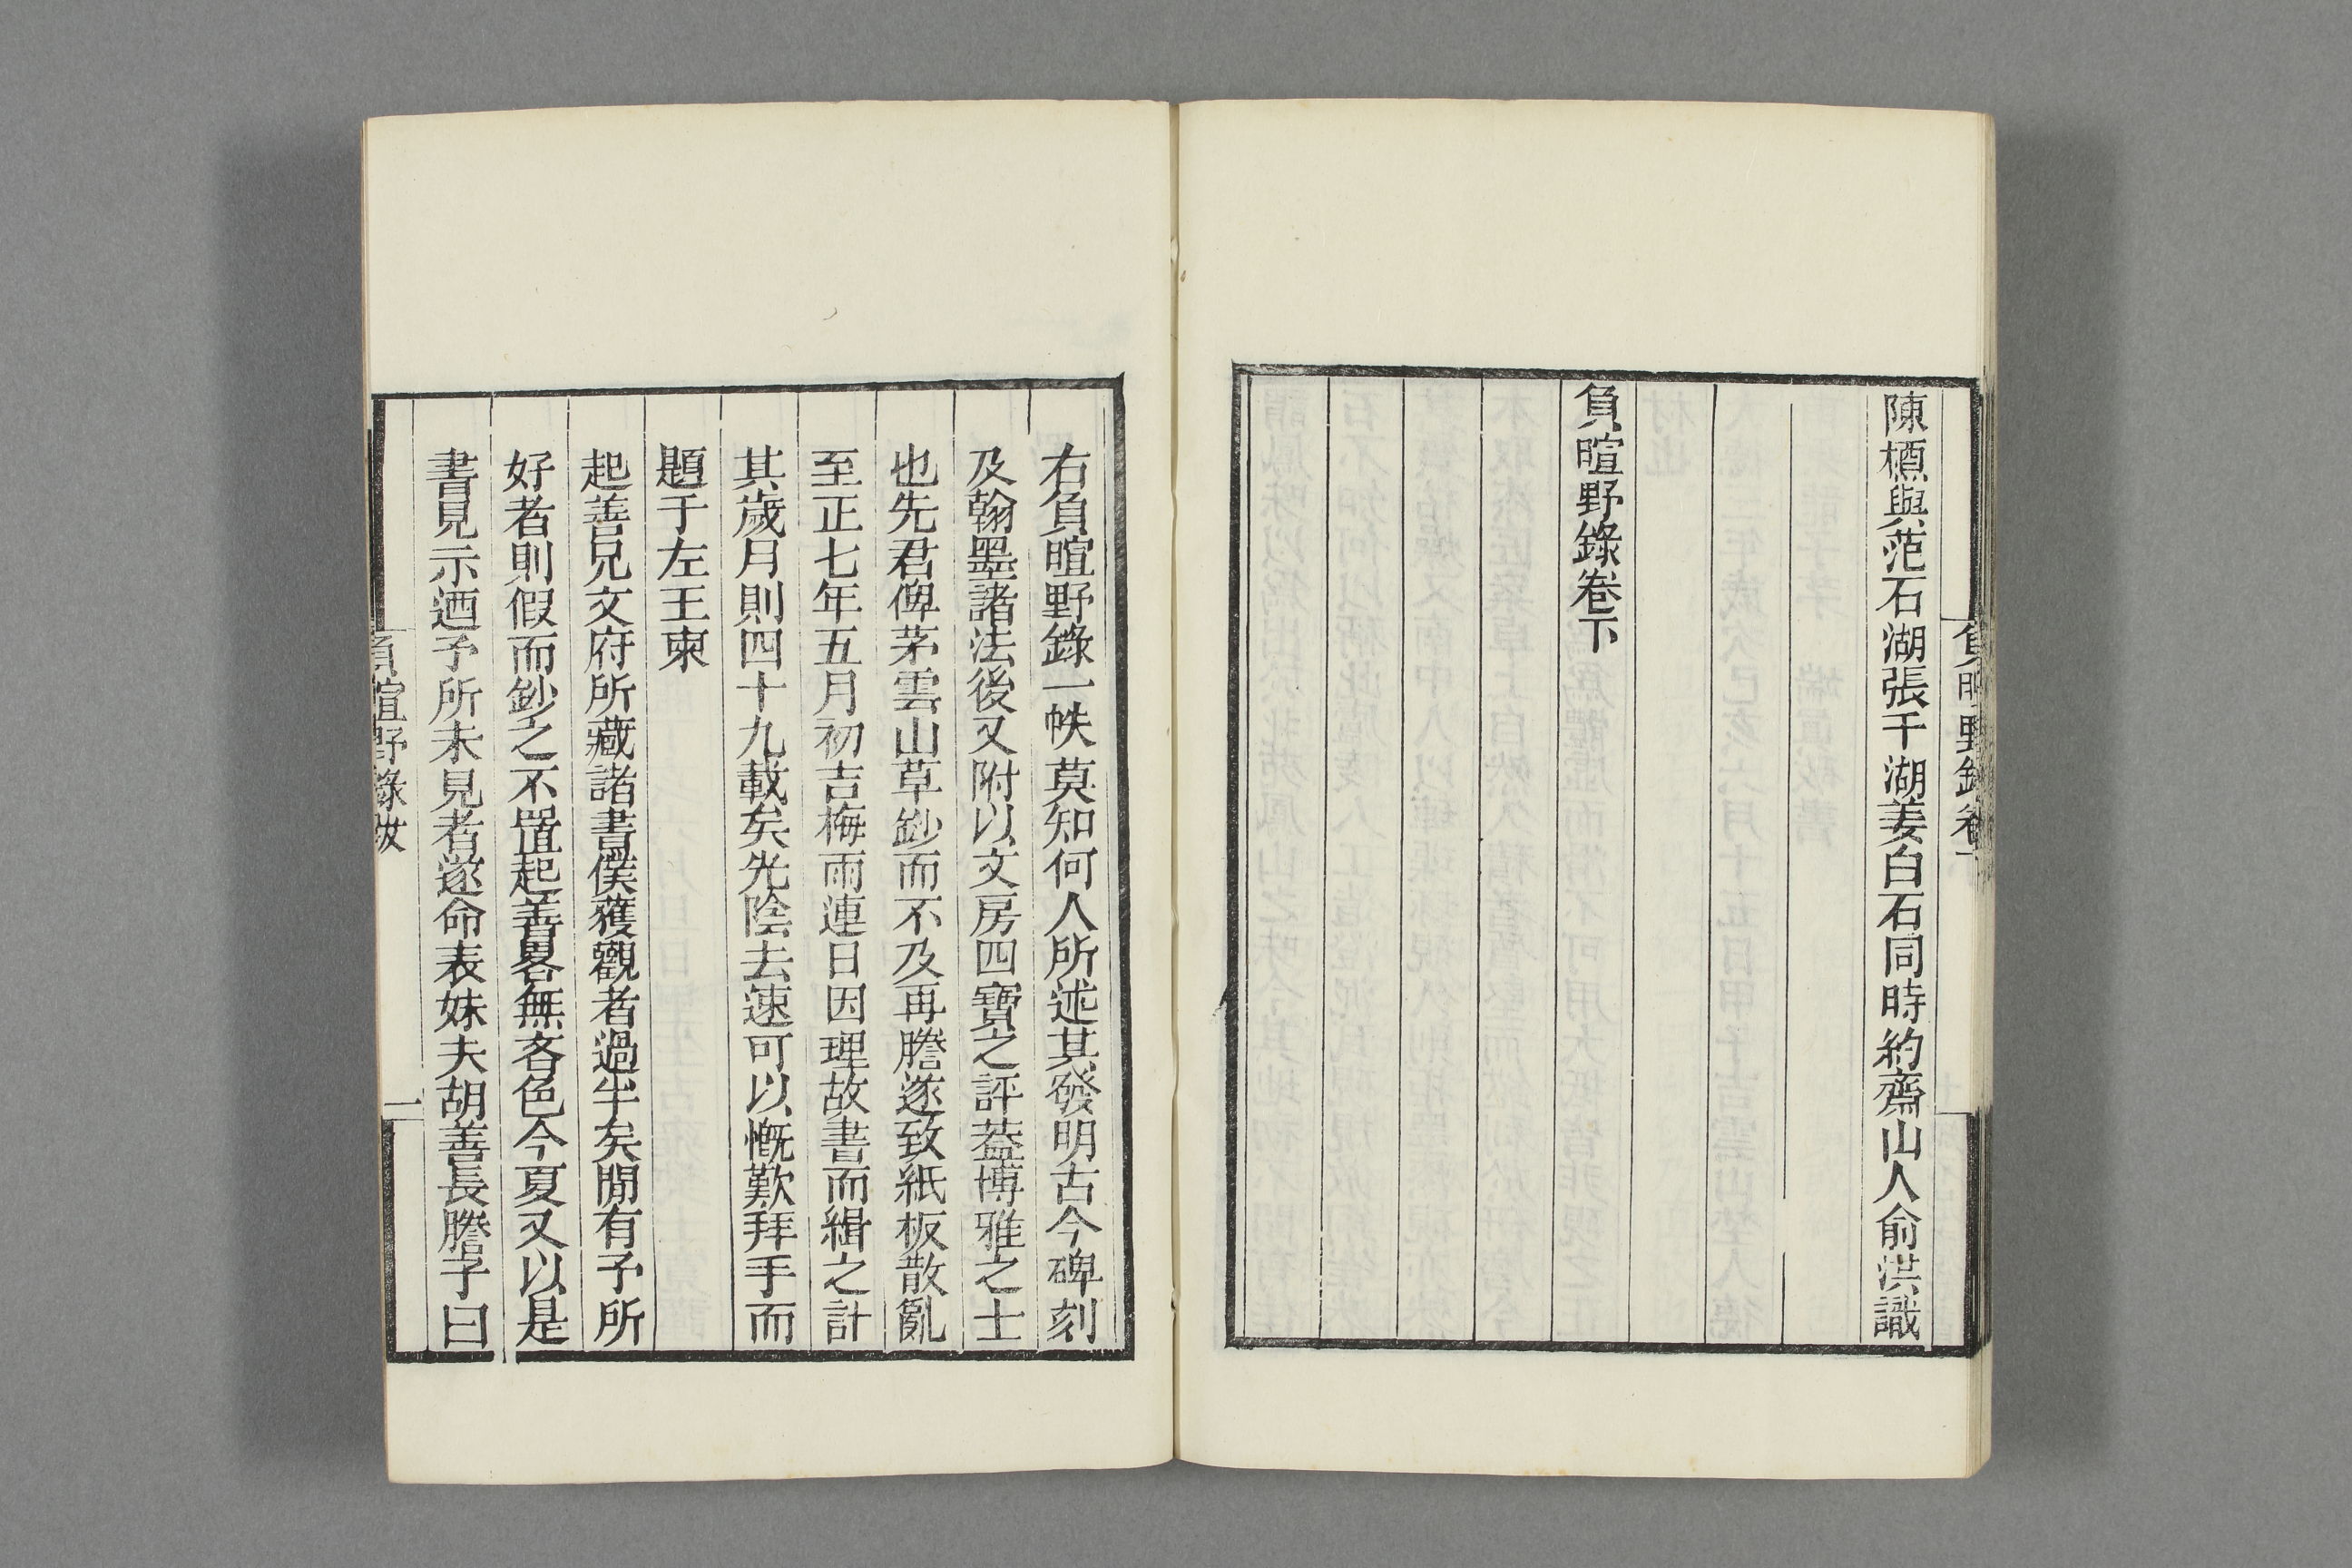 陳槱與范石湖張于湖姜白石同時約齋山人俞洪識
負暄野錄卷下
負暄野錄卷下
右負暄野錄一帙莫知何人所述其發明古今碑刻
及翰墨諸法後又附以文房四寶之評葢博雅之士
也先君俾茅雲山草鈔而不及再謄遂致紙板散亂
至正七年五月初吉梅雨連日因理故書而緝之計
其歲月則四十九載矣光陰去速可以慨歎拜手而
題于左王東
起善兄文府所藏諸書僕獲觀者過半矣閒有予所
好者則假而鈔之不置起善畧無吝色今夏又以是
書見示迺予所未見者遂命表妹夫胡善長謄予曰
負暄野錄跋
一